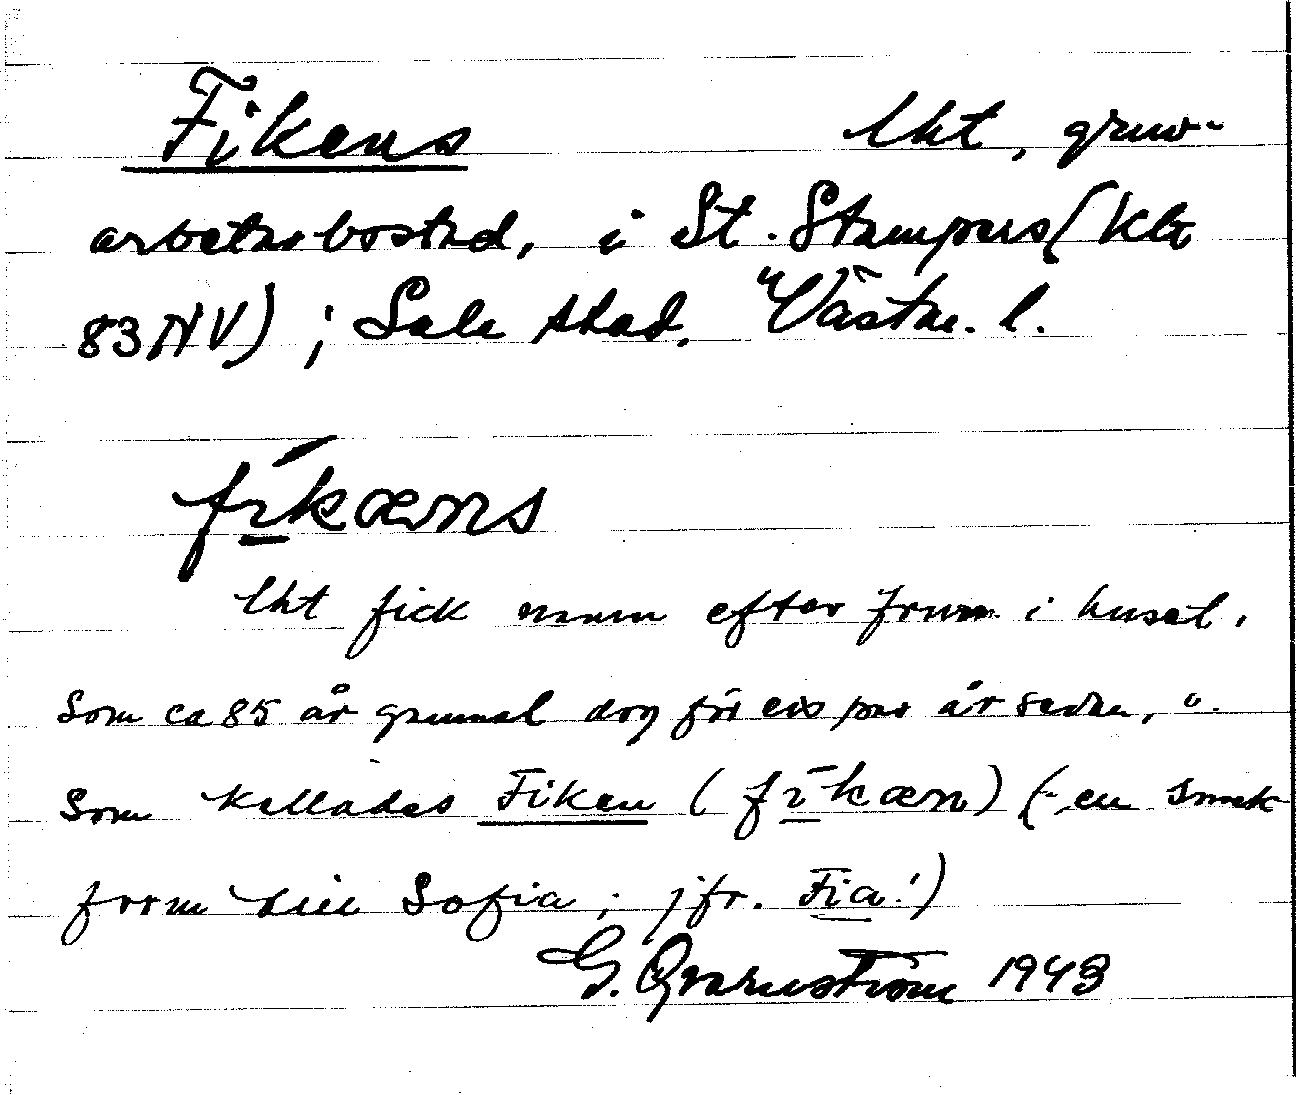 Fikens lht, gruv-
arbetarbostad, i St. Stampers (Kla
83 NV) ; Sala stad. Västm. l.
fi̱kæns
lht fick namn efter frun i huset,
som ca 85 år gammal dog för ett par år sedan, o.
som kallades Fiken (fi̱kæn) (- en smek-
form till Sofia ; jfr. Fia!)
G. Qvarnström 1943